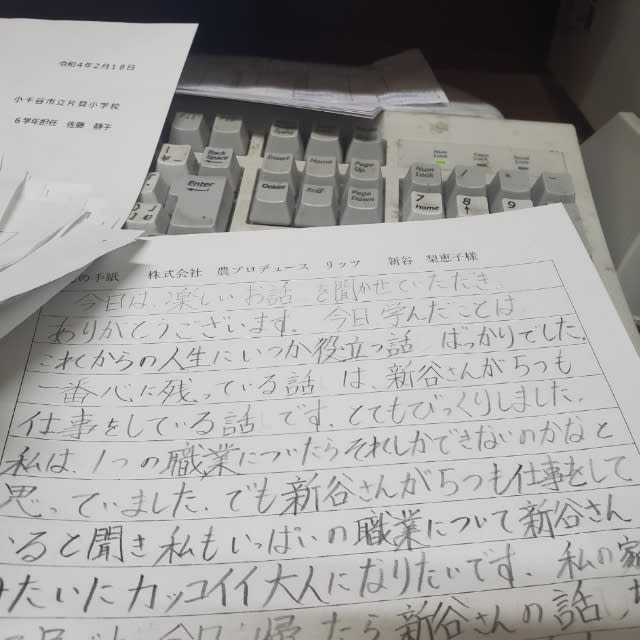 令和4年2月18日
小千谷市立片貝小学校
6学年担任 佐藤 静子
Enter
Back Space
Insert
Home
Page Up
Delete
End
Page Down
Num Lock
/
*
-
7 Home
8
9
手紙 株式会社 農プロデュース リッツ 新谷 梨恵子様
今日は、楽しいお話を聞かせていただき
ありがとうございます。今日学んだことは
これからの人生にいつか役立つ話ばっかりでした。
一番心に残っている話は、新谷さんが5つも
仕事をしている話です。とてもびっくりしました。
私は、1つの職業についたらそれしかできないのかなと
思っていました。でも新谷さんが5つも仕事をして
いると聞き私もいっぱいの職業について新谷さん
みたいにカッコイイ大人になりたいです。私の家
今日帰ったら新谷さんの話し